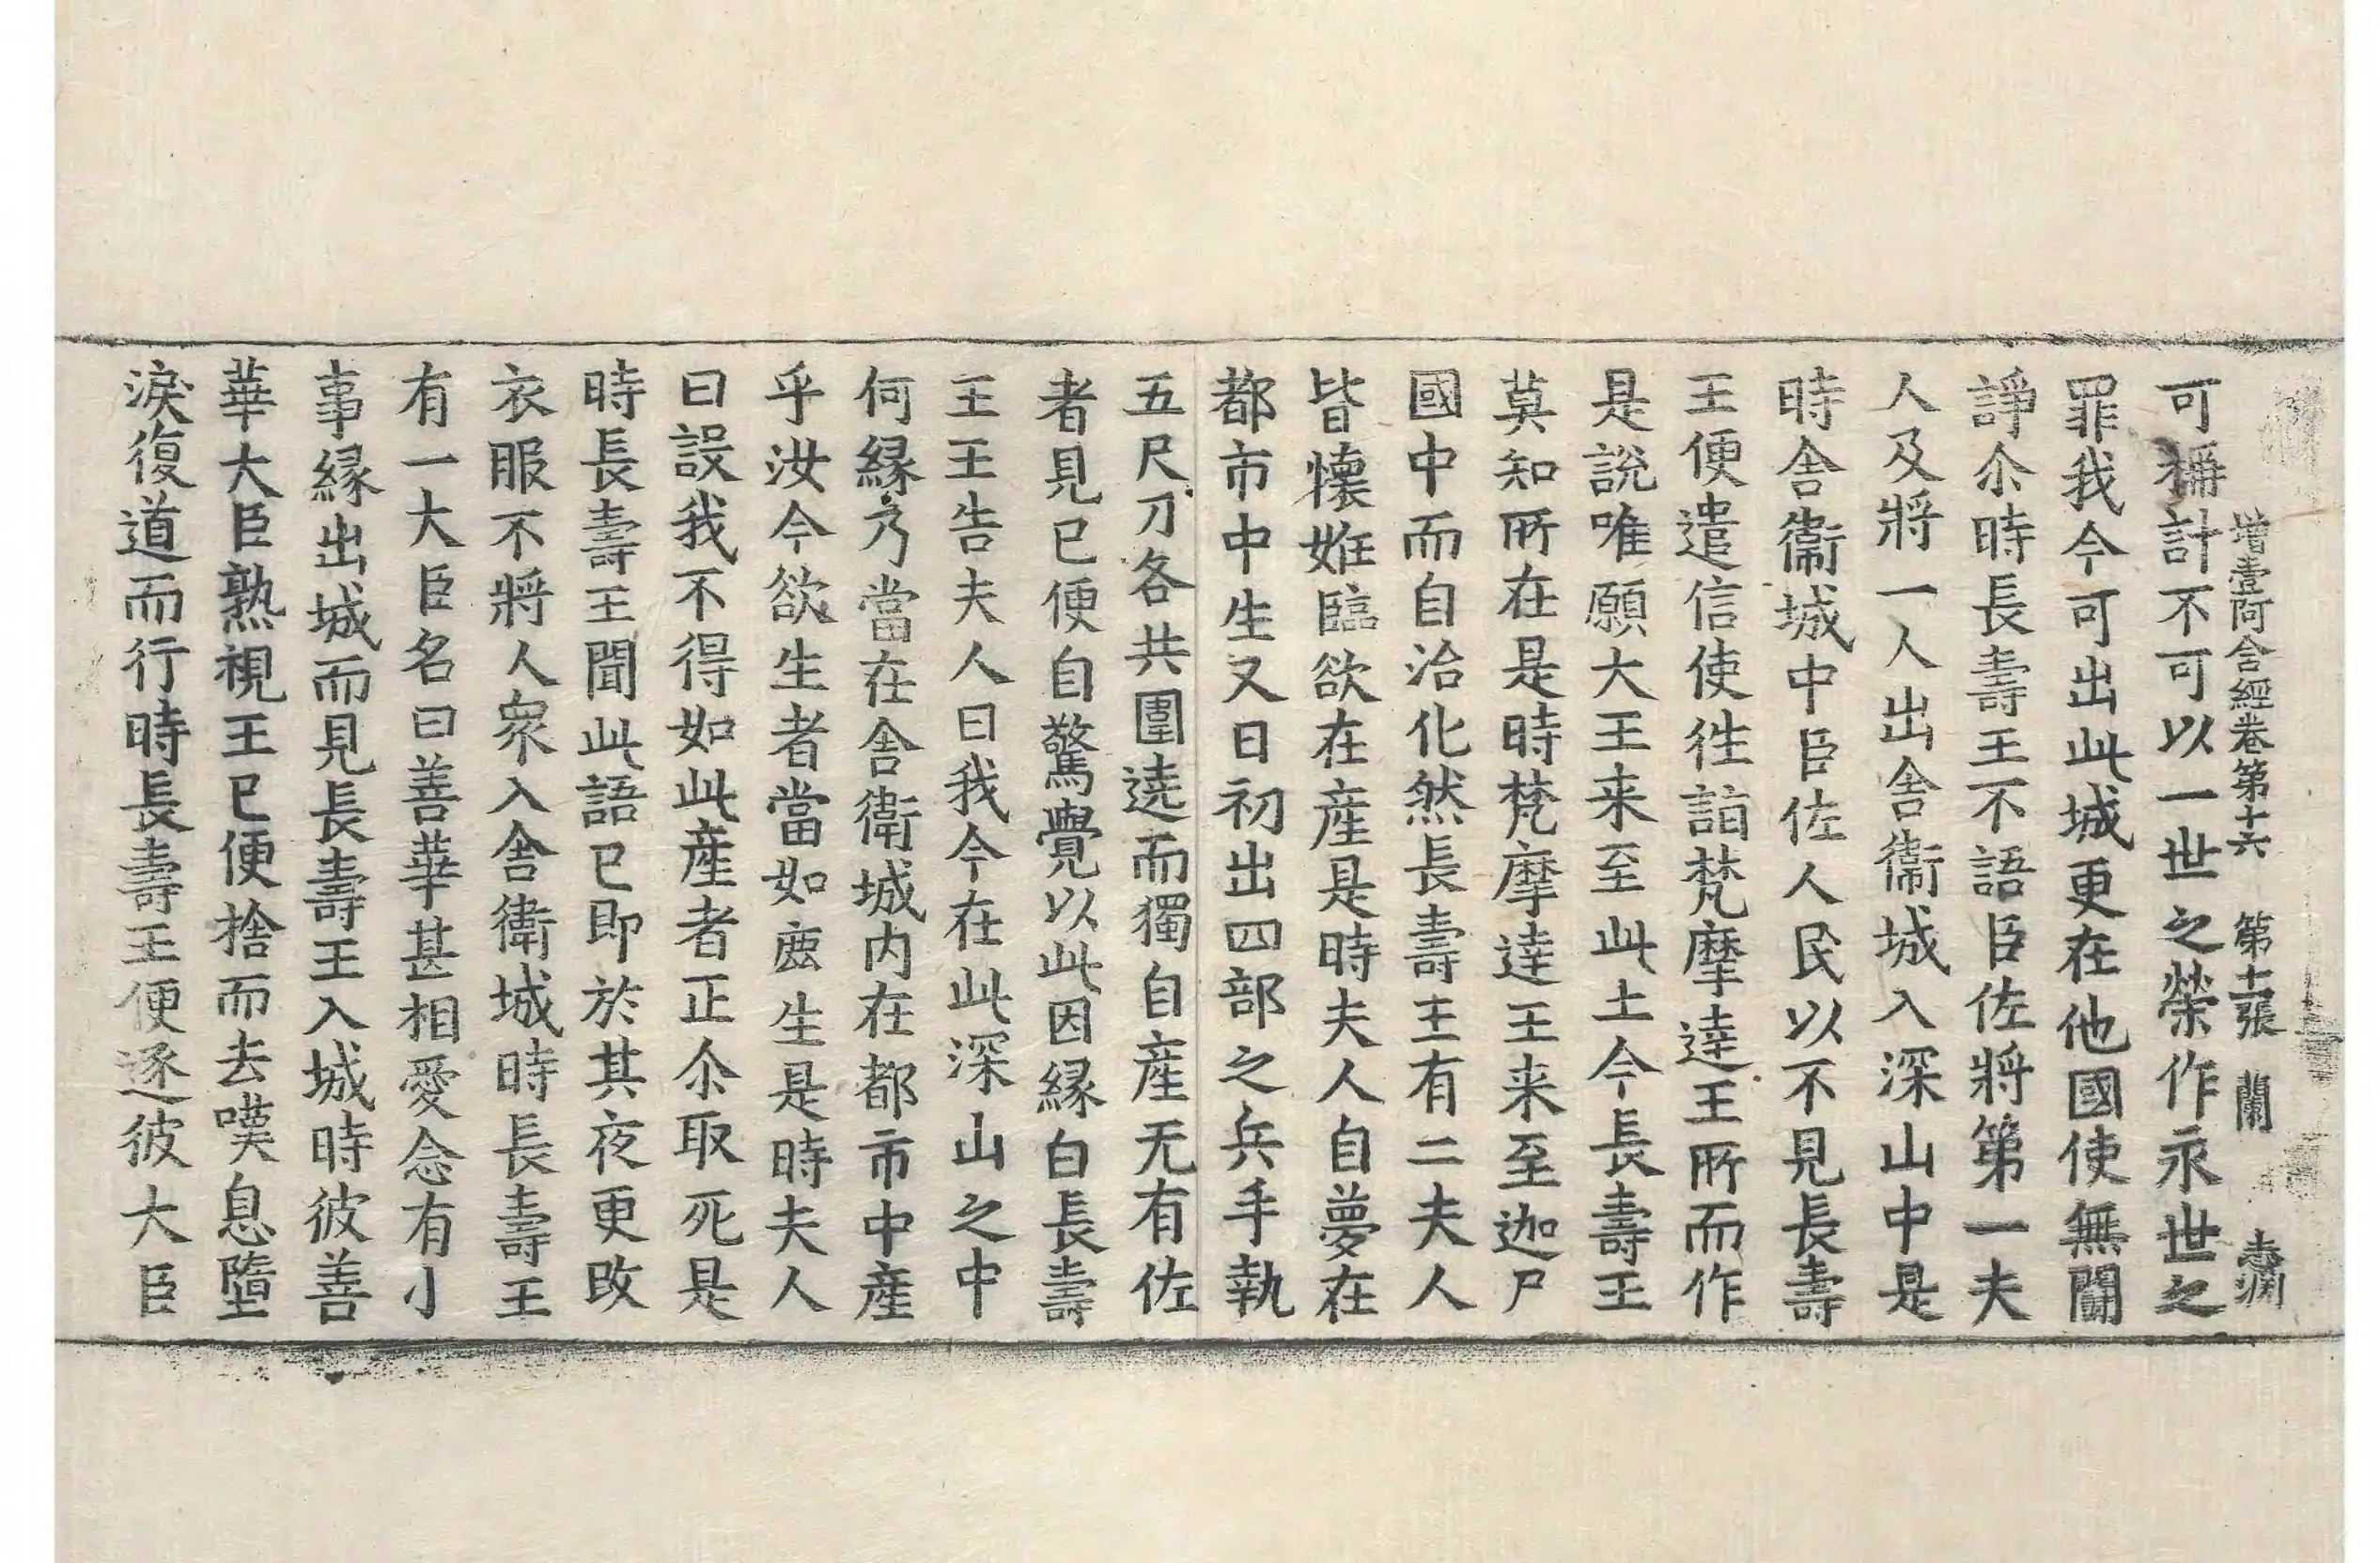 增壹阿含經卷第十六 第十二張 蘭
可稱計不可以一世之榮作永世之
罪我今可出此城更在他國使無鬪
諍尒時長壽王不語臣佐將第一夫
人及將一人出舍衞城入深山中是
時舍衞城中臣佐人民以不見長壽
王便遣信使往詣梵摩達王所而作
是說唯願大王来至此土今長壽王
莫知所在是時梵摩達王来至迦尸
國中而自治化然長壽王有二夫人
皆懷妊臨欲在產是時夫人自夢在
都市中生又日初出四部之兵手執
五尺刀各共圍遶而獨自產无有佐
者見已便自驚覺以此因縁白長壽
王王告夫人曰我今在此深山之中
何縁乃當在舍衛城内在都市中產
乎汝今欲生者當如鹿生是時夫人
曰設我不得如此產者正尒取死是
時長壽王聞此語已即於其夜更改
衣服不將人衆入舍衛城時長壽王
有一大臣名曰善華甚相愛念有小
事縁出城而見長壽王入城時彼善
華大臣熟視王已便捨而去嘆息墮
淚復道而行時長壽王便逐彼大臣